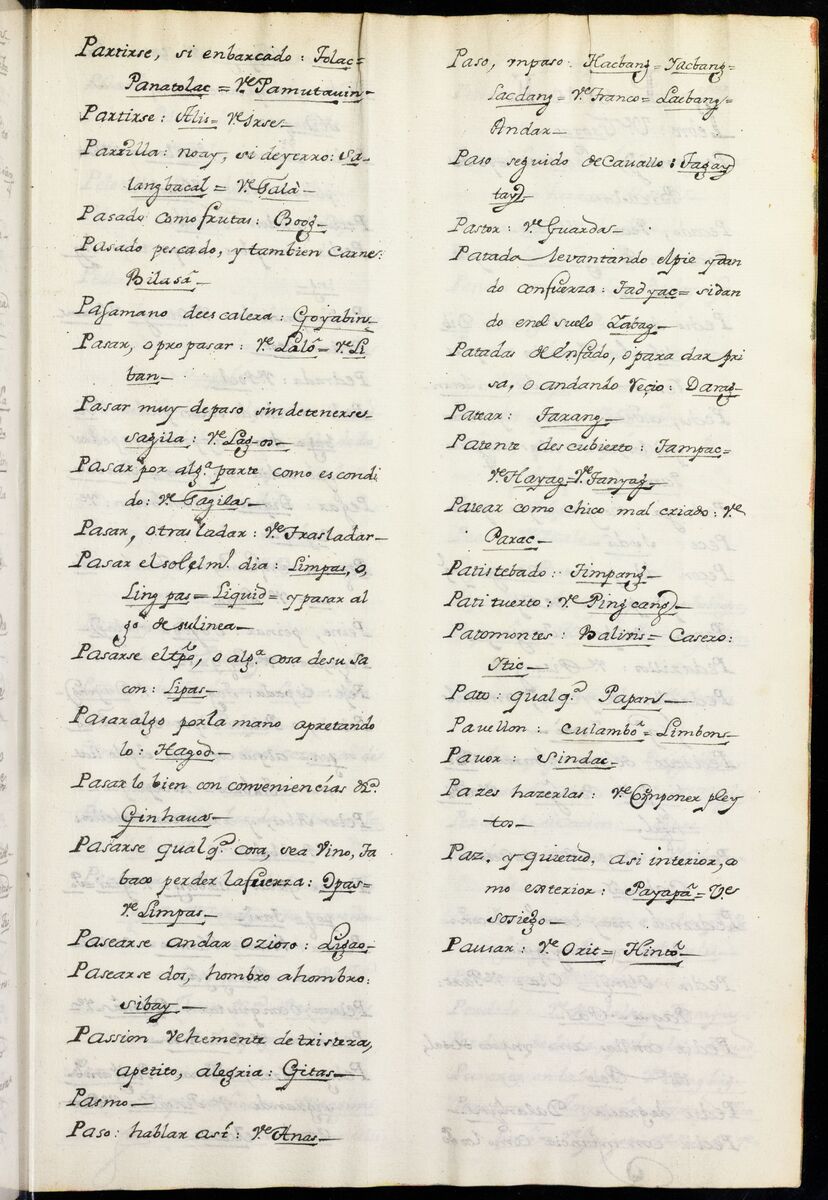 Partirse, si enbarcado: Tolac=
Panatolac = Vᵉ Pamutauin
Partirse: Alis= Vᵉ Irse
Parrilla: no ay, si de yerro: Sa-
langbacal = Vᵉ Tala
Pasado como frutas: Boog
Pasado pescado, y tambien Carne:
Bilasâ
Pasamano de escalera: Goyabin
Pasar, o propasar: Vᵉ Lalô= Vᵉ Li
ban
Pasar muy depaso sin detenerse
sagila: Vᵉ Lag-os
Pasar por algª parte como escondi
do: Vᵉ Tagilas
Pasar, o trasladar: Vᵉ Trasladar
Pasar el sol el m.ᵒ dia: Limpas, o,
Lingpas = Liquid = y pasar al
gᵒ de sulinea
Pasarse eltpᵒ, o algª cosa desu sa
con: Lipas
Pasar algo porla mano apretando
lo: Hagod
Pasarlo bien con conveniencias &ª
Ginhaua
Pasarse qualqª cosa, sea Vino, Ta
baco perder lafuerza: Opas=
Vᵉ Limpas
Pasearse andar ozioso: Ligao
Pasearse dos, hombro a hombro:
sibay
Passion Vehemente de tristeza,
apetito, alegria: Gitas
Pasmo
Paso: hablar así: Vᵉ Anas
Paso, un paso: Hacbang= Yacbang=
Lacdang= Vᵉ Tranco= Lacbang=
Andar
Paso seguido de Cavallo: Tagay
tay
Pastor: Vᵉ Guardas
Patada levantando elpie y dan
do con fuerza: Tadyac= si dan
do enel suelo Labag
Patadas de Enfado, o para dar pri
sa, o andando reçio: Darag
Patear: Tarang
Patente descubierto: Tampac=
Vᵉ Hayag= Vᵉ Tanyag
Patear como chico mal criado: Vᵉ
Parac
Patistebado: Timpang
Pati tuerto: Vᵉ Pingcang
Patomontes: Baliuis= Casero:
Itic
Pato: qualqª Papan
Pavellon: Culambô= Limbon
Pavor: Sindac
Pazes hazerlas: Vᵉ Componer pley
tos
Paz, y quietud, asi interior, co
mo exterior: Payapâ= Vᵉ
sosiego
Pausar: Vᵉ Orit= Hintô